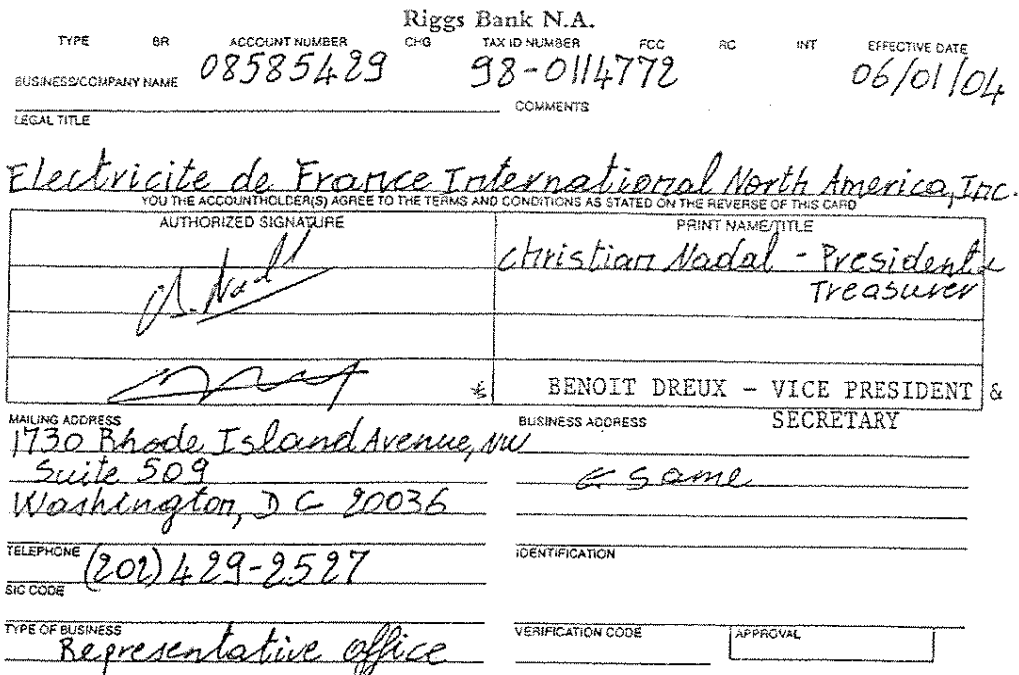 Riggs Bank N.A.
TYPE BR ACCOUNT NUMBER CHG TAX ID NUMBER FCC RC INT EFFECTIVE DATE
08585429 98-0114772 06/01/04
BUSINESS/COMPANY NAME
COMMENTS
LEGAL TITLE
Electricite de France International North America, Inc.
YOU THE ACCOUNTHOLDER(S) AGREE TO THE TERMS AND CONDITIONS AS STATED ON THE REVERSE OF THIS CARD
AUTHORIZED SIGNATURE PRINT NAME/TITLE
Christian Nadal - President &
Treasurer
BENOIT DREUX - VICE PRESIDENT &
SECRETARY
MAILING ADDRESS BUSINESS ADDRESS
1730 Rhode Island Avenue, NW
Suite 509 same
Washington, DC 20036
TELEPHONE (202) 429-2527 IDENTIFICATION
SIC CODE
TYPE OF BUSINESS VERIFICATION CODE APPROVAL
Representative office